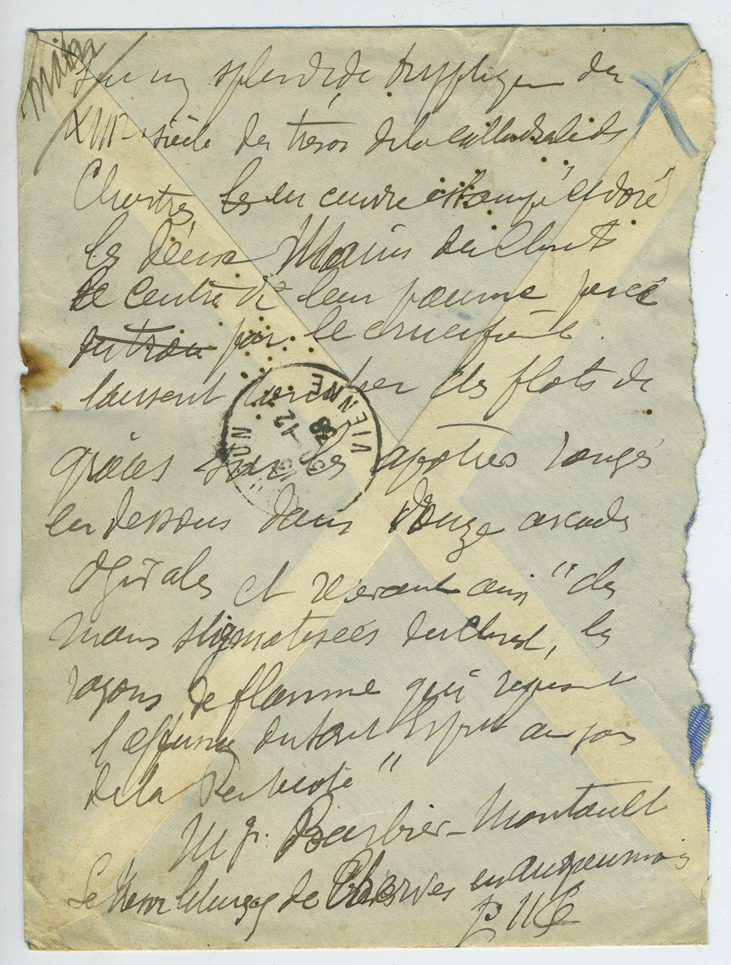 main
Sur un splendide tryptique du
XIIIe siècle du trésor de la cathédrale de
Chartres, en cuivre estampé et doré
les deux Mains du Christ
le centre de leur paume percé
par le crucifiement
laissent des flots de
grâces sur les apôtres rangés
en dessous dans douze arcades
ogivales et recevant ainsi "des
mains stigmatisées du Christ, les
rayons de flamme qui
l'effusion du Saint Esprit au jour
de la Pentecôte"
Mgr. Barbier-Montault
Le trésor liturgique de Cherves en Angoumois
p 116
VIENNE
12